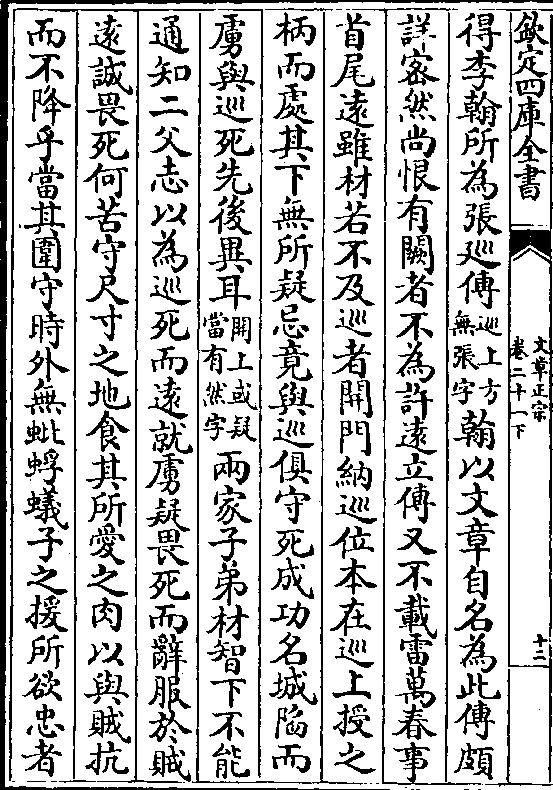 欽定四庫全書
文章正宗
卷二十一下
十二
得李翰所為張廵傳廵上方無張字翰以文章自名為此傳頗
詳宻然尚恨有闕者不為許逺立傳又不載雷萬春事
首尾逺雖材若不及廵者開門納廵位本在廵上授之
柄而處其下無所疑忌竟與廵俱守死成功名城陷而
虜與廵死先後異耳開上或疑當有然字兩家子弟材智下不能
通知二父志以為廵死而逺就虜疑畏死而辭服於賊
逺誠畏死何苦守尺寸之地食其所愛之肉以與賊抗
而不降乎當其圍守時外無蚍蜉蟻子之援所欲忠者